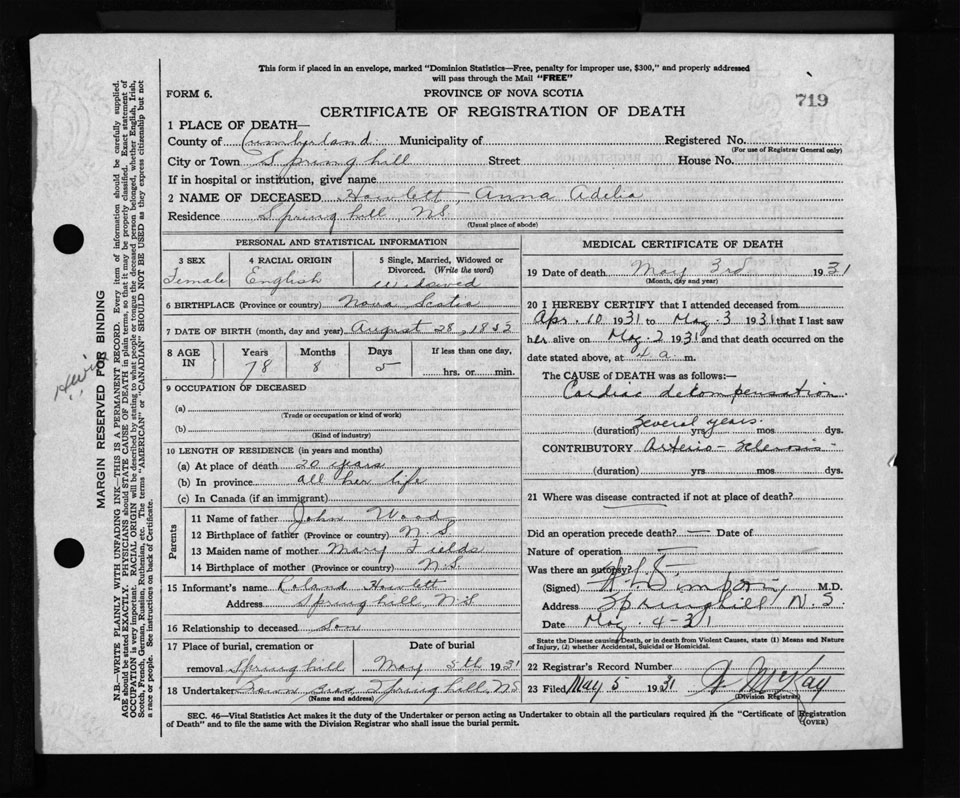 This form if placed in an envelope, marked "Dominion Statistics—Free, penalty for improper use, $300," and properly addressed
will pass through the Mail "FREE"
FORM 6.
PROVINCE OF NOVA SCOTIA
719
CERTIFICATE OF REGISTRATION OF DEATH
1 PLACE OF DEATH—
County of Cumberland Municipality of Registered No.
(For use of Registrar General only)
City or Town Springhill Street House No.
If in hospital or institution, give name
2 NAME OF DECEASED Howlett, Anna Adelia
Residence Springhill, N.S.
(Usual place of abode)
PERSONAL AND STATISTICAL INFORMATION
3 SEX 4 RACIAL ORIGIN 5 Single, Married, Widowed or Divorced. (Write the word)
Female English Widowed
6 BIRTHPLACE (Province or country) Nova Scotia
7 DATE OF BIRTH (month, day and year) August 28, 1852
8 AGE IN Years Months Days If less than one day,
78 8 5 hrs. or min.
9 OCCUPATION OF DECEASED
(a)
(Trade or occupation or kind of work)
(b)
(Kind of industry)
10 LENGTH OF RESIDENCE (in years and months)
(a) At place of death 20 years
(b) In province all her life
(c) In Canada (if an immigrant)
Parents
11 Name of father John Wood
12 Birthplace of father (Province or country) N.S.
13 Maiden name of mother Mary Fields
14 Birthplace of mother (Province or country) N.S.
15 Informant's name Roland Howlett
Address Springhill, N.S
16 Relationship to deceased Son
17 Place of burial, cremation or Date of burial
removal Springhill May 5th 1931
18 Undertaker Bros Springhill, N.S
(Name and address)
MEDICAL CERTIFICATE OF DEATH
19 Date of death May 3rd 1931
(Month, day and year)
20 I HEREBY CERTIFY that I attended deceased from
Apr. 10 1931 to May 3 1931 that I last saw
her alive on May 2 1931 and that death occurred on the
date stated above, at 4 a m.
The CAUSE of DEATH was as follows:—
Cardiac decompensation
several years
(duration) yrs mos dys.
CONTRIBUTORY Arterio-sclerosis
(duration) yrs mos dys.
21 Where was disease contracted if not at place of death?
Did an operation precede death? — Date of
Nature of operation
Was there an autopsy?
(Signed) Simpson, M.D.
Address Springhill N.S.
Date May 4-31
State the Disease causing Death, or in death from Violent Causes, state (1) Means and Nature
of Injury, (2) whether Accidental, Suicidal or Homicidal.
22 Registrar's Record Number
23 Filed May 5 1931 McKay
(Division Registrar)
SEC. 46—Vital Statistics Act makes it the duty of the Undertaker or person acting as Undertaker to obtain all the particulars required in the "Certificate of Registration
of Death" and to file the same with the Division Registrar who shall issue the burial permit. (OVER)
MARGIN RESERVED FOR BINDING
N.B.—WRITE PLAINLY WITH UNFADING INK—THIS IS A PERMANENT RECORD. Every item of information should be carefully supplied.
AGE should be stated EXACTLY. PHYSICIANS should STATE CAUSE OF DEATH in plain terms, so that it may be properly classified. Exact statement of
OCCUPATION is very important. RACIAL ORIGIN will be described by stating to what people or tongue the deceased person belonged, whether English, Irish,
Scotch, French, German, Russian, Ruthenian, etc. The terms "AMERICAN" or "CANADIAN" SHOULD NOT BE USED as they express citizenship but not
a race or people. See instructions on back of Certificate.